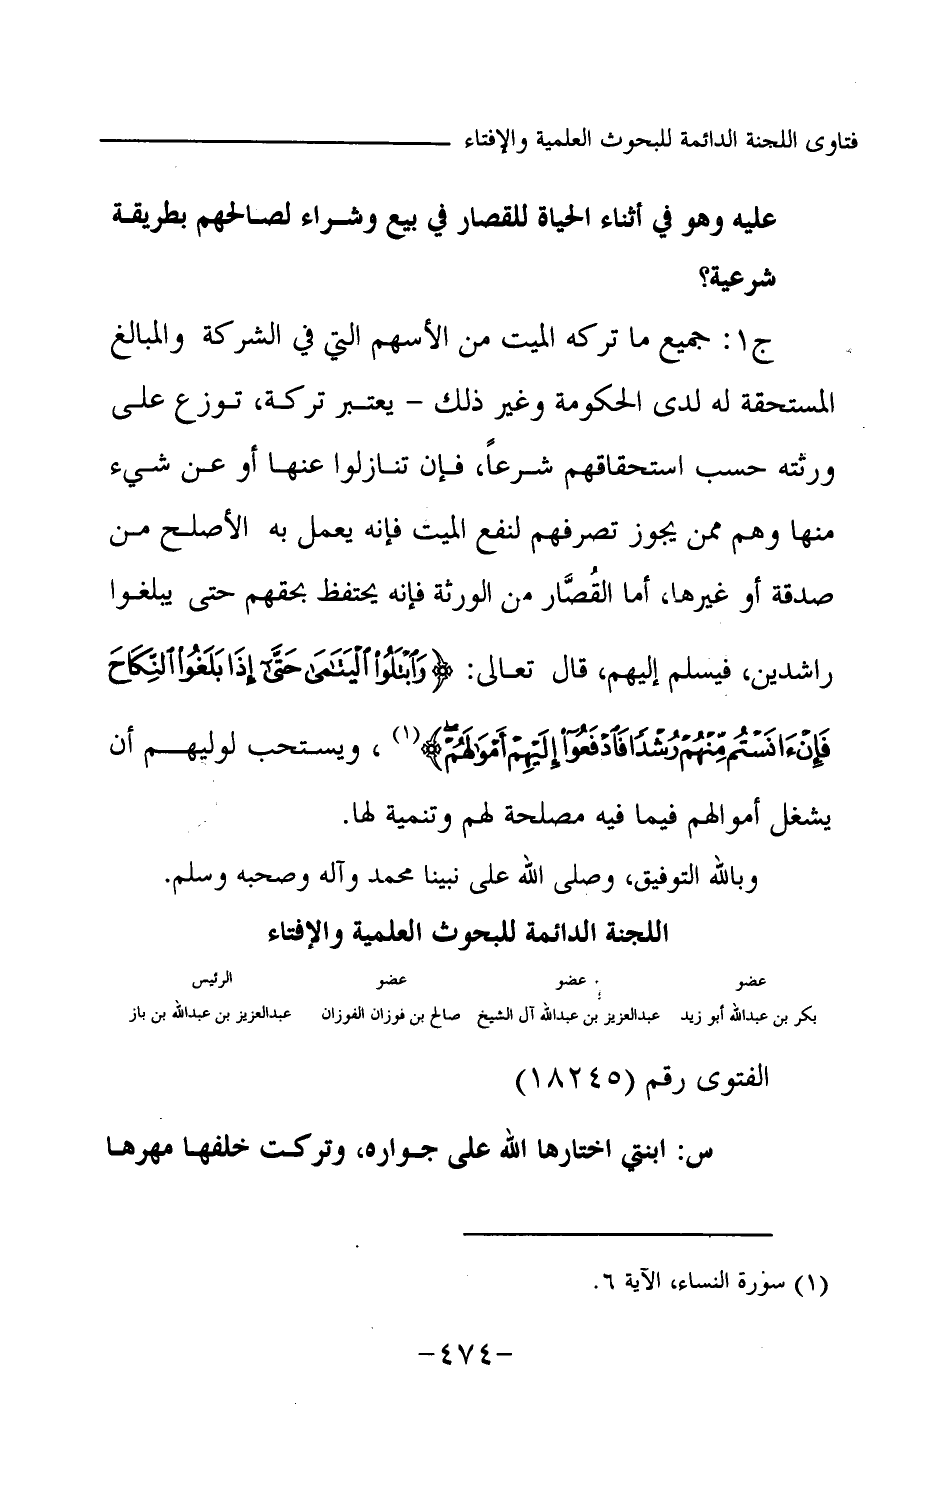 فتاوى اللجنة الدائمة للبحوث العلمية والإفتاء
عليه وهو في أثناء الحياة للقصار في بيع وشراء لصالحهم بطريقة
شرعية؟
ج١: جميع ما تركه الميت من الأسهم التي في الشركة والمبالغ
المستحقة له لدى الحكومة وغير ذلك - يعتبر تركة، توزع على
ورثته حسب استحقاقهم شرعاً، فإن تنازلوا عنها أو عن شيء
منها وهم ممن يجوز تصرفهم لنفع الميت فإنه يعمل به الأصلح من
صدقة أو غيرها، أما القُصَّار من الورثة فإنه يحتفظ بحقهم حتى يبلغوا
راشدين، فيسلم إليهم، قال تعالى: ﴿وَٱبۡتَلُوا۟ ٱلۡيَتَـٰمَىٰ حَتَّىٰٓ إِذَا بَلَغُوا۟ ٱلنِّكَاحَ
فَإِنۡ ءَانَسۡتُم مِّنۡهُمۡ رُشۡدًا فَٱدۡفَعُوٓا۟ إِلَيۡهِمۡ أَمۡوَٰلَهُمۡۖ﴾(١)، ويستحب لوليهم أن
يشغل أموالهم فيما فيه مصلحة لهم وتنمية لها.
وبالله التوفيق، وصلى الله على نبينا محمد وآله وصحبه وسلم.
اللجنة الدائمة للبحوث العلمية والإفتاء
عضو عضو عضو الرئيس
بكر بن عبدالله أبو زيد عبدالعزيز بن عبدالله آل الشيخ صالح بن فوزان الفوزان عبدالعزيز بن عبدالله بن باز
الفتوى رقم (١٨٢٤٥)
س: ابنتي اختارها الله على جواره، وتركت خلفها مهرها
(١) سورة النساء، الآية ٦.
-٤٧٤-